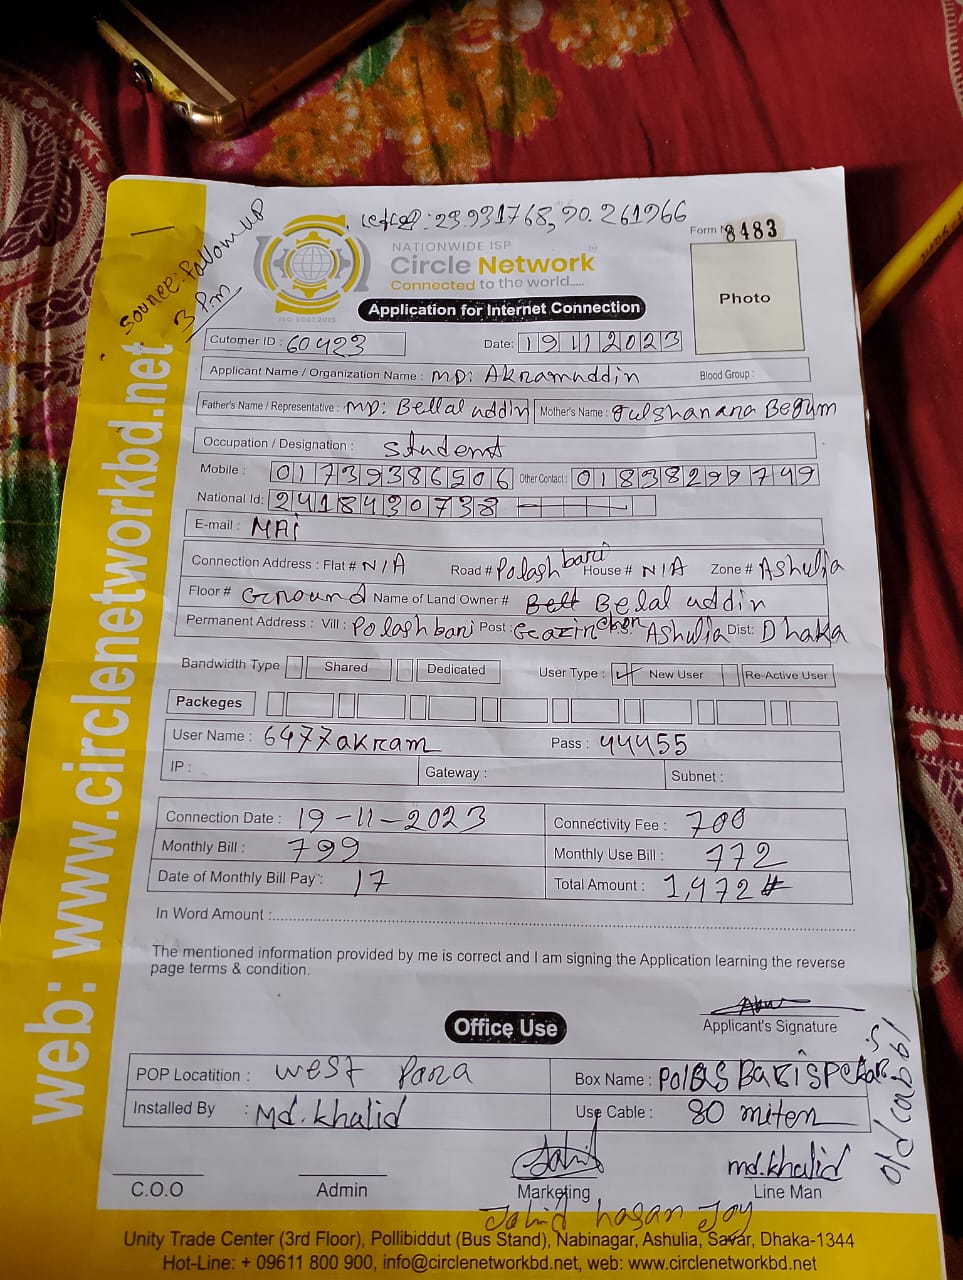 23.931768, 90.261966
Form № 8483
Source: Follow up
3 P.m
NATIONWIDE ISP
Circle Network
Connected to the world.....
ISO 9001:2015
Application for Internet Connection
Photo
Cutomer ID : 60423 Date: 19 11 2023
Applicant Name / Organization Name : MD: Akramuddin Blood Group :
Father's Name / Representative : MD: Bellal uddin Mother's Name : Gulshanara Begum
Occupation / Designation : Student
Mobile : 01739386506 Other Contact : 01838299749
National Id: 2418430738
E-mail : MAi
Connection Address : Flat # N/A Road # Polashbari House # N/A Zone # Ashulia
Floor # Ground Name of Land Owner # Belal uddin
Permanent Address : Vill : Polashbari Post : Gazirchon P.S: Ashulia Dist: Dhaka
Bandwidth Type Shared Dedicated User Type : ✓ New User Re-Active User
Packeges
User Name : 6477akram Pass : 44455
IP : Gateway : Subnet :
Connection Date : 19-11-2023 Connectivity Fee : 700
Monthly Bill : 799 Monthly Use Bill : 772
Date of Monthly Bill Pay : 17 Total Amount : 1,472 #
In Word Amount :
The mentioned information provided by me is correct and I am signing the Application learning the reverse
page terms & condition.
Applicant's Signature
Office Use
POP Locatition : West Para Box Name : Polas Bari
Installed By : Md. Khalid Use Cable : 80 miter
old cable
md. khalid
C.O.O Admin Marketing Line Man
Jahid hasan Joy
Unity Trade Center (3rd Floor), Pollibiddut (Bus Stand), Nabinagar, Ashulia, Savar, Dhaka-1344
Hot-Line: + 09611 800 900, info@circlenetworkbd.net, web: www.circlenetworkbd.net
web: www.circlenetworkbd.net